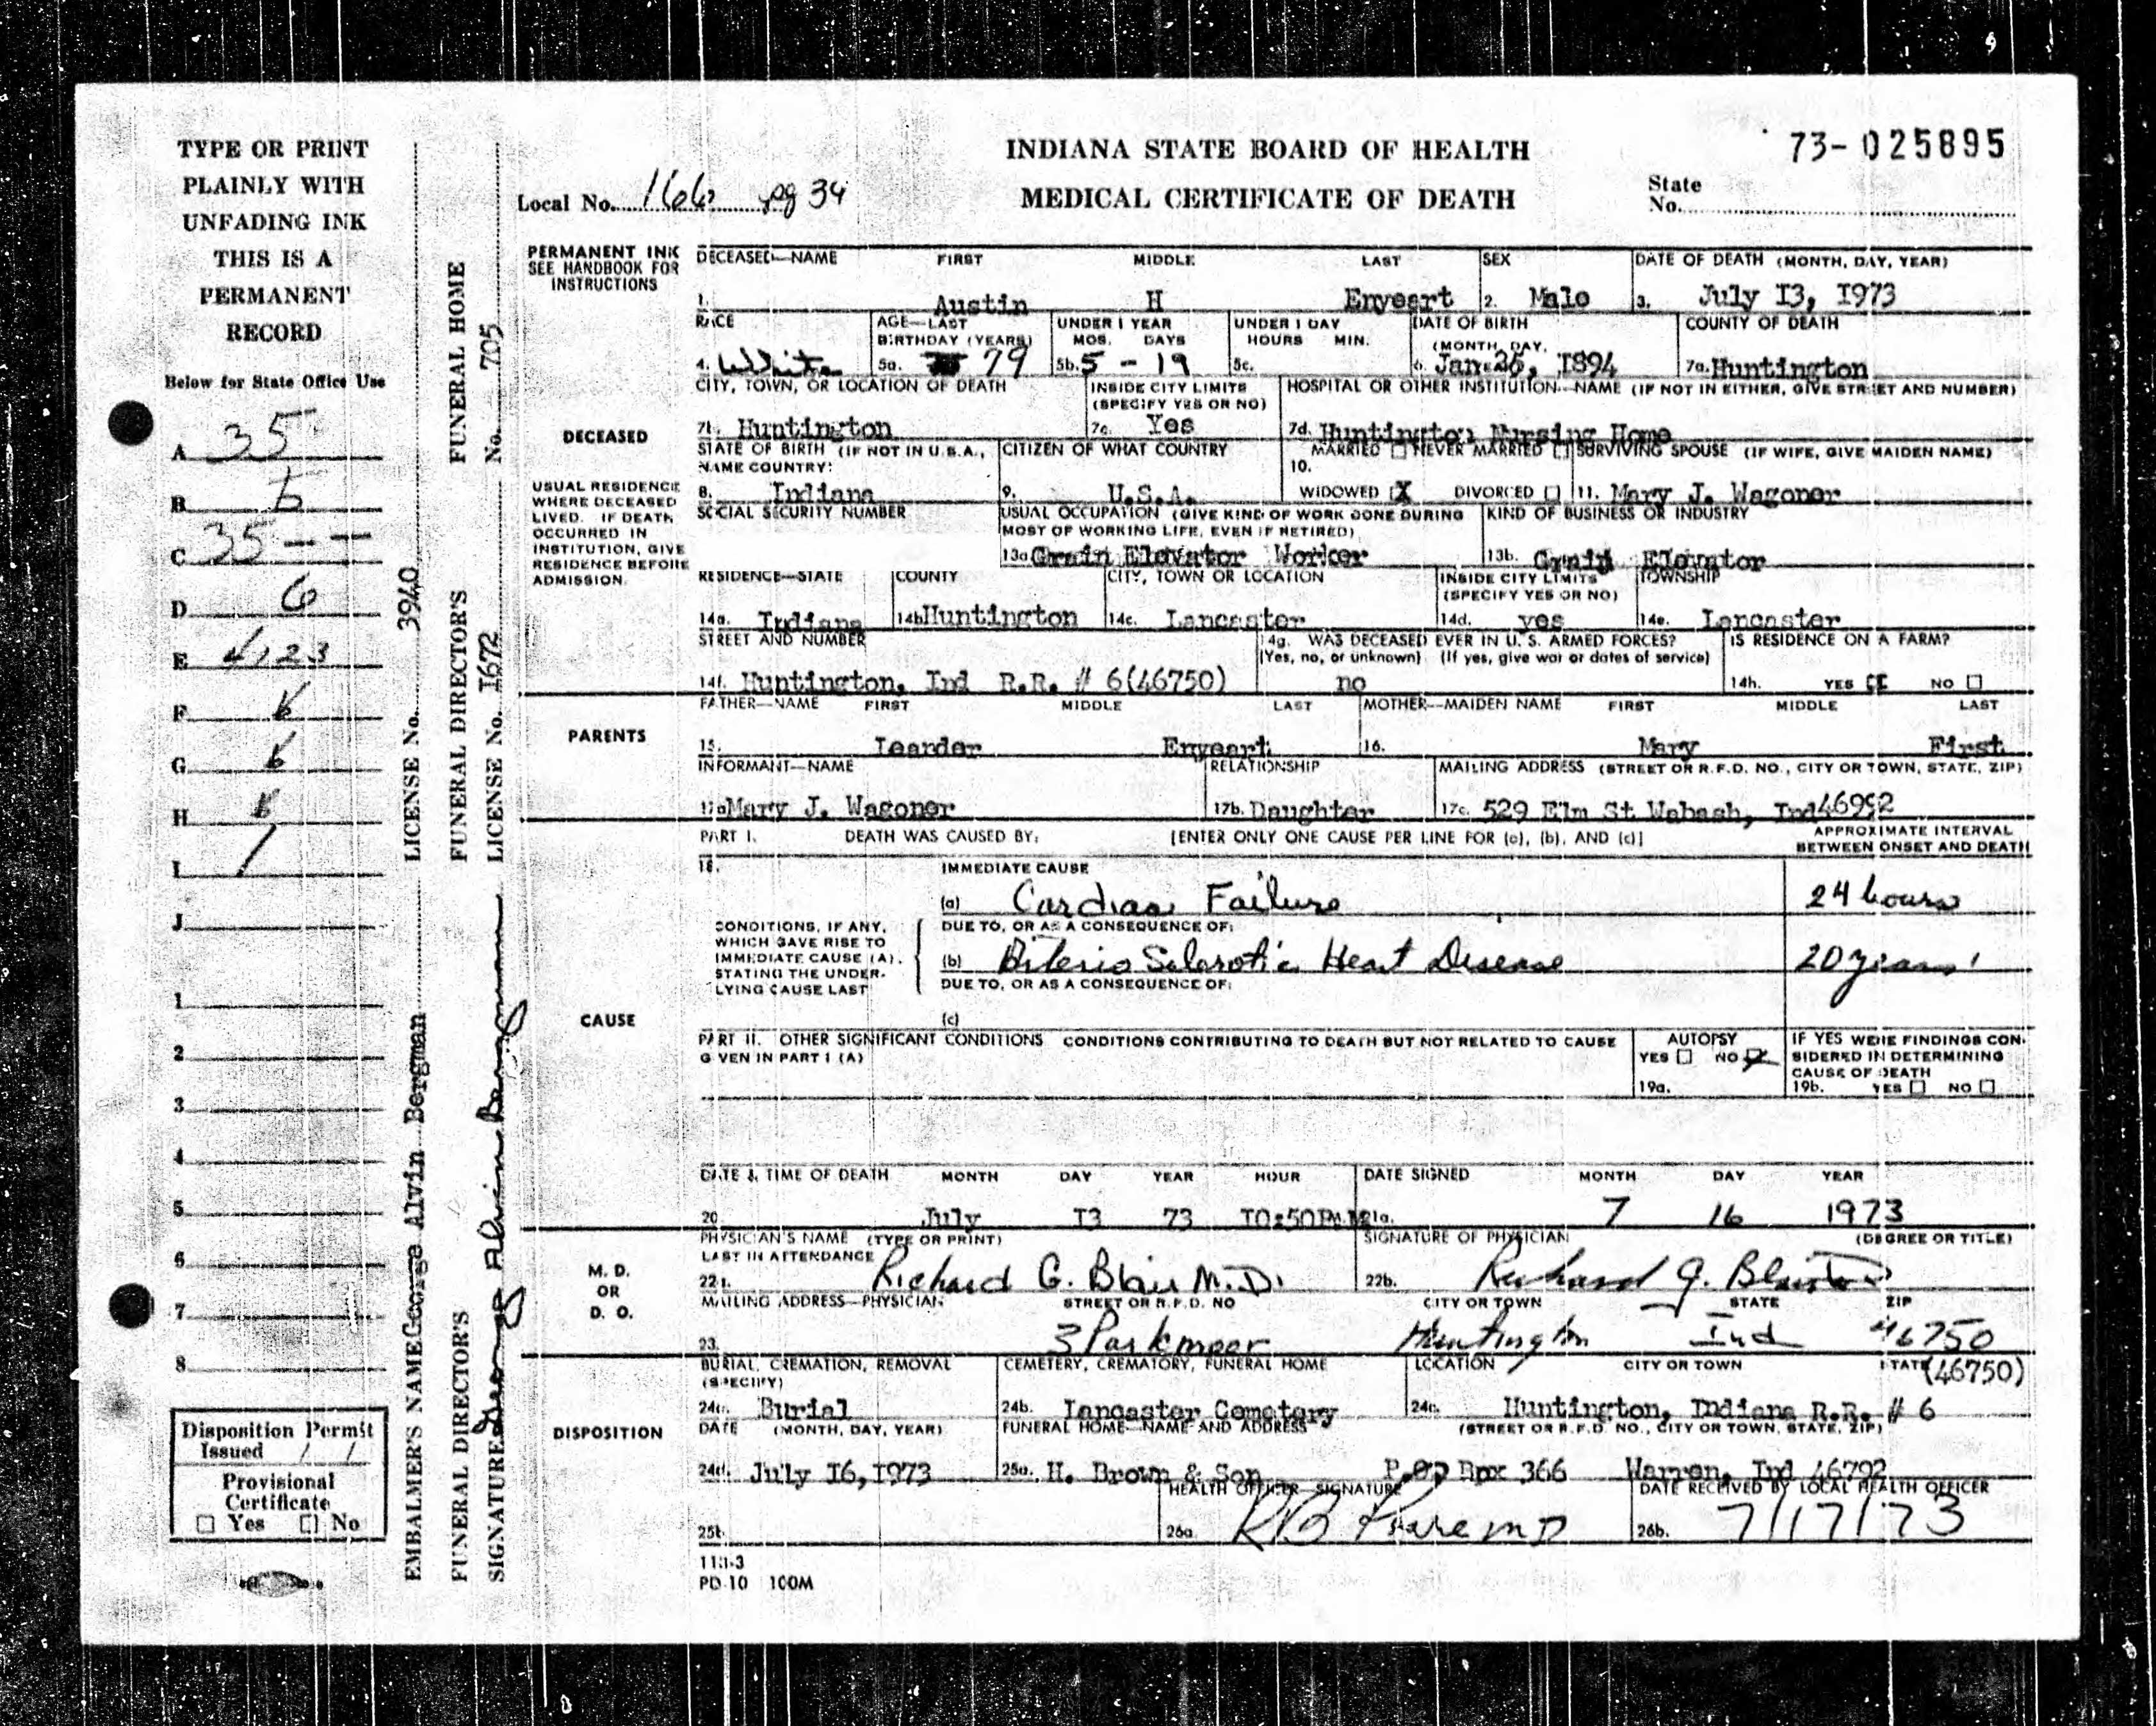 73-025895
INDIANA STATE BOARD OF HEALTH
MEDICAL CERTIFICATE OF DEATH
State
No.
Local No. 166 pg 34
TYPE OR PRINT
PLAINLY WITH
UNFADING INK
THIS IS A
PERMANENT
RECORD
Below for State Office Use
A 35
B
C 35 - -
D 6
E 4123
F
G
H
I
J
1
2
3
4
5
6
7
8
Disposition Permit
Issued / /
Provisional
Certificate
Yes No
EMBALMER'S NAME George Alvin Bergman LICENSE No. 3940
FUNERAL DIRECTOR'S FUNERAL DIRECTOR'S FUNERAL HOME
SIGNATURE George Alvin Bergman LICENSE No. I672 No. 705
PERMANENT INK
SEE HANDBOOK FOR
INSTRUCTIONS
DECEASED—NAME FIRST MIDDLE LAST SEX DATE OF DEATH (MONTH, DAY, YEAR)
1. Austin H Enyeart 2. Male 3. July I3, I973
RACE AGE—LAST BIRTHDAY (YEARS) UNDER 1 YEAR MOS. DAYS UNDER 1 DAY HOURS MIN. DATE OF BIRTH (MONTH, DAY, COUNTY OF DEATH
4. White 5a. 79 5b. 5 - 19 5c. 6. Jan. 26, I894 7a. Huntington
CITY, TOWN, OR LOCATION OF DEATH INSIDE CITY LIMITS (SPECIFY YES OR NO) HOSPITAL OR OTHER INSTITUTION—NAME (IF NOT IN EITHER, GIVE STREET AND NUMBER)
DECEASED
7b. Huntington 7c. Yes 7d. Huntington Nursing Home
USUAL RESIDENCE
WHERE DECEASED
LIVED. IF DEATH
OCCURRED IN
INSTITUTION, GIVE
RESIDENCE BEFORE
ADMISSION.
STATE OF BIRTH (IF NOT IN U.S.A., NAME COUNTRY) CITIZEN OF WHAT COUNTRY 10. MARRIED NEVER MARRIED SURVIVING SPOUSE (IF WIFE, GIVE MAIDEN NAME)
8. Indiana 9. U.S.A. WIDOWED X DIVORCED 11. Mary J. Wagoner
SOCIAL SECURITY NUMBER USUAL OCCUPATION (GIVE KIND OF WORK DONE DURING MOST OF WORKING LIFE, EVEN IF RETIRED) KIND OF BUSINESS OR INDUSTRY
13a. Grain Elevator Worker 13b. Grain Elevator
RESIDENCE—STATE COUNTY CITY, TOWN OR LOCATION INSIDE CITY LIMITS (SPECIFY YES OR NO) TOWNSHIP
14a. Indiana 14b. Huntington 14c. Lancaster 14d. yes 14e. Lancaster
STREET AND NUMBER 14g. WAS DECEASED EVER IN U. S. ARMED FORCES? (Yes, no, or unknown) (If yes, give war or dates of service) IS RESIDENCE ON A FARM?
14f. Huntington, Ind R.R. # 6(46750) no 14h. YES NO
PARENTS
FATHER—NAME FIRST MIDDLE LAST MOTHER—MAIDEN NAME FIRST MIDDLE LAST
15. Leander Enyeart 16. Mary First
INFORMANT—NAME RELATIONSHIP MAILING ADDRESS (STREET OR R.F.D. NO., CITY OR TOWN, STATE, ZIP)
17a Mary J. Wagoner 17b. Daughter 17c. 529 Elm St Wabash, Ind 46992
PART I. DEATH WAS CAUSED BY: [ENTER ONLY ONE CAUSE PER LINE FOR (a), (b), AND (c)] APPROXIMATE INTERVAL BETWEEN ONSET AND DEATH
18. IMMEDIATE CAUSE
(a) Cardiac Failure 24 hours
CAUSE
CONDITIONS, IF ANY,
WHICH GAVE RISE TO
IMMEDIATE CAUSE (A).
STATING THE UNDER-
LYING CAUSE LAST
DUE TO, OR AS A CONSEQUENCE OF:
(b) Arterio Sclerotic Heart Disease 20 years
DUE TO, OR AS A CONSEQUENCE OF:
(c)
PART II. OTHER SIGNIFICANT CONDITIONS CONDITIONS CONTRIBUTING TO DEATH BUT NOT RELATED TO CAUSE GIVEN IN PART I (A)
AUTOPSY
YES NO
19a.
IF YES WERE FINDINGS CON-
SIDERED IN DETERMINING
CAUSE OF DEATH
19b. YES NO
DATE & TIME OF DEATH MONTH DAY YEAR HOUR DATE SIGNED MONTH DAY YEAR
20. July I3 73 I0:50P.M. 21a. 7 16 1973
M. D.
OR
D. O.
PHYSICIAN'S NAME (TYPE OR PRINT) LAST IN ATTENDANCE SIGNATURE OF PHYSICIAN (DEGREE OR TITLE)
22a. Richard G. Blair M.D. 22b. Richard G. Blair
MAILING ADDRESS—PHYSICIAN STREET OR R.F.D. NO CITY OR TOWN STATE ZIP
23. 3 Parkmoor Huntington Ind 46750
DISPOSITION
BURIAL, CREMATION, REMOVAL (SPECIFY) CEMETERY, CREMATORY, FUNERAL HOME LOCATION CITY OR TOWN STATE (46750)
24a. Burial 24b. Lancaster Cemetery 24c. Huntington, Indiana R.R. # 6
DATE (MONTH, DAY, YEAR) FUNERAL HOME—NAME AND ADDRESS (STREET OR R.F.D. NO., CITY OR TOWN, STATE, ZIP)
24d. July I6, I973 25a. H. Brown & Son P.O. Box 366 Warren, Ind 46792
HEALTH OFFICER—SIGNATURE DATE RECEIVED BY LOCAL HEALTH OFFICER
25b. 26a. 26b. 7/17/73
PD 10 100M